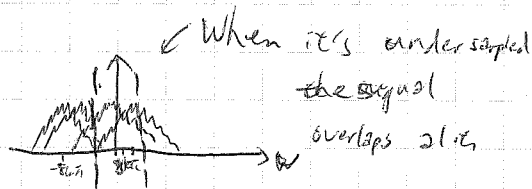 When it's undersampled
the signal
overlaps
ω